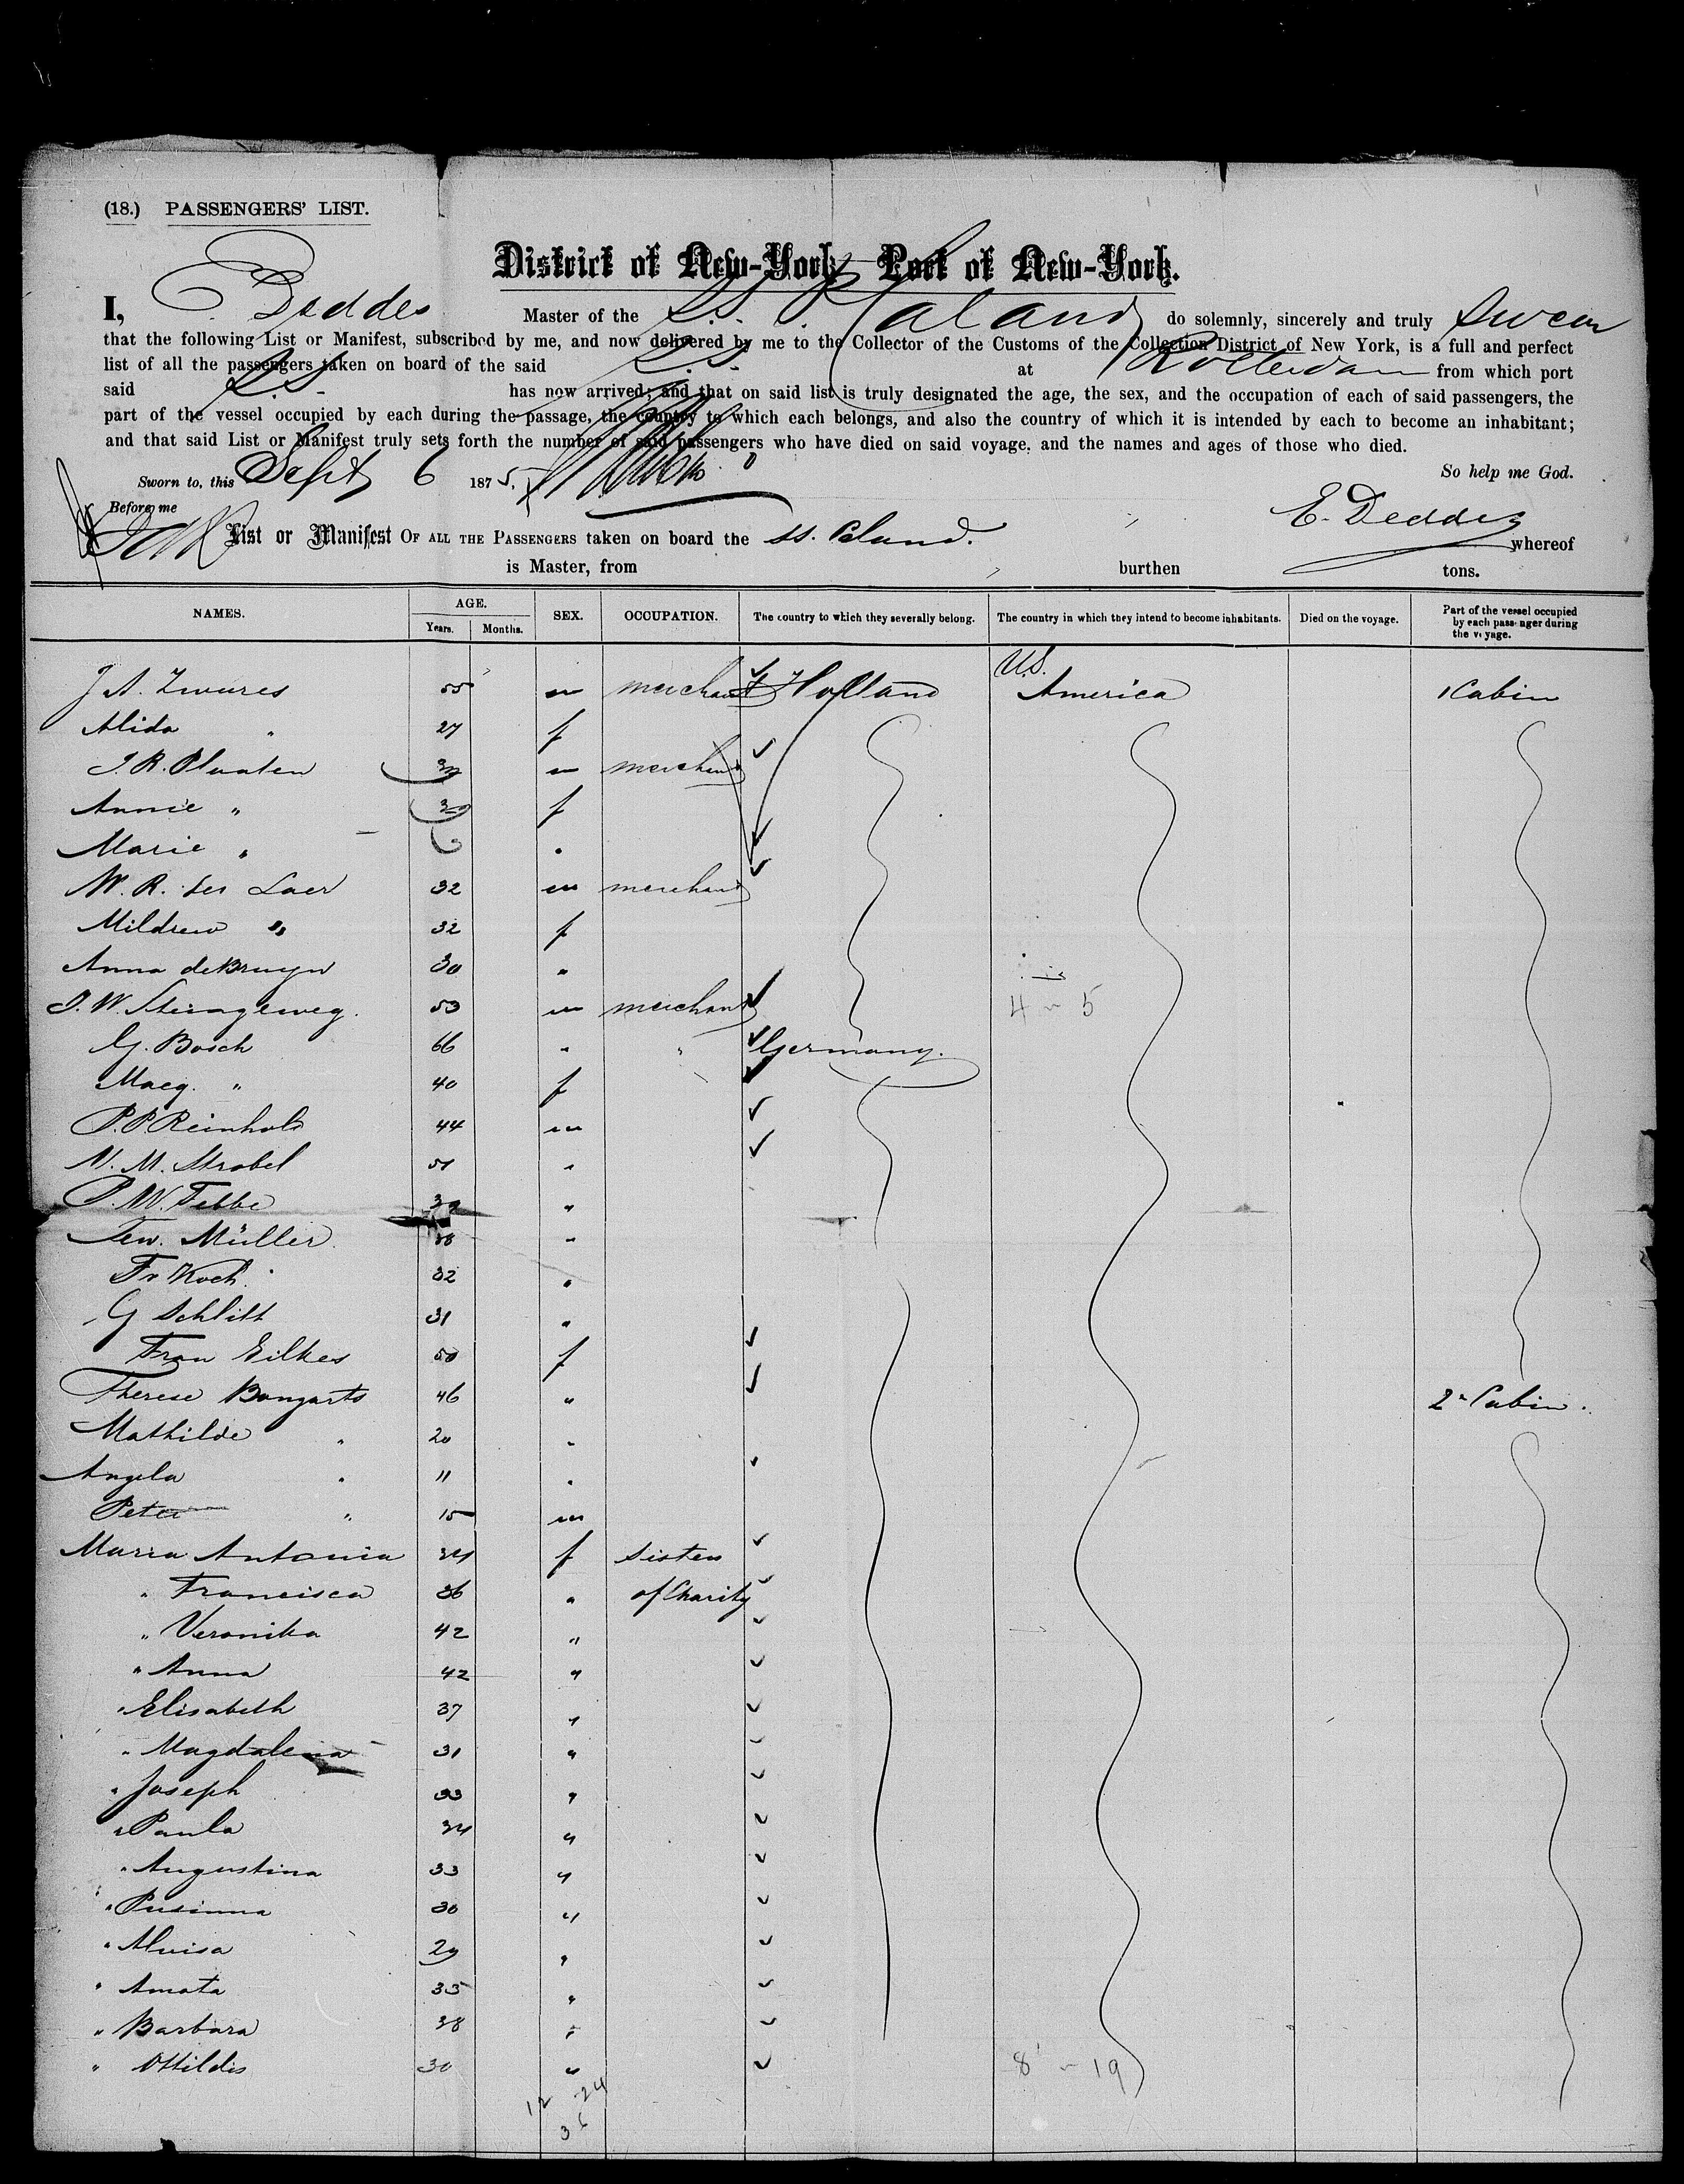 (18.) PASSENGERS' LIST.
District of New-York Port of New-York.
I, E. Deddes Master of the S.S. P. Caland do solemnly, sincerely and truly swear
that the following List or Manifest, subscribed by me, and now delivered by me to the Collector of the Customs of the Collection District of New York, is a full and perfect
list of all the passengers taken on board of the said S.S. at Rotterdam from which port
said S.S. has now arrived; and that on said list is truly designated the age, the sex, and the occupation of each of said passengers, the
part of the vessel occupied by each during the passage, the country to which each belongs, and also the country of which it is intended by each to become an inhabitant;
and that said List or Manifest truly sets forth the number of said passengers who have died on said voyage, and the names and ages of those who died.
Sworn to, this Sept 6 1875. So help me God.
Before me E. Deddes
List or Manifest OF ALL THE PASSENGERS taken on board the ss. Caland. whereof
is Master, from burthen tons.
NAMES. AGE. SEX. OCCUPATION. The country to which they severally belong. The country in which they intend to become inhabitants. Died on the voyage. Part of the vessel occupied by each passenger during the voyage.
Years. Months.
U.S.
J A. Zwures 55 m merchant Holland America 1 Cabin
Alida " 27 f
J. R. Pluaten 39 m merchant
Annie " 39 f
Marie " "
W. R. ter Laer 32 m merchant
Mildrew " 32 f
Anna deBruyn 30 "
J. W. Stieringleweg. 53 m merchant 4 - 5
G. Bosch 66 " " Germany.
Maeg. " 40 f
P. P. Reinhold 44 m
N. M. Strobel 51 "
P. W. Tebbe 39 "
Few. Müller 38 "
Fr Koch. 32 "
G Schlitt 31 "
Frau Eilkes 50 f
Therese Bongarts 46 " 2n Cabin.
Mathilde " 20 "
Angela " 11 "
Peter " 15 m
Maria Antonia 34 f Sisters
" Francisca 36 " of Charity
" Veronika 42 "
" Anna 42 "
" Elisabeth 37 "
" Magdalena 31 "
" Joseph 33 "
" Paula 34 "
" Augustina 33 "
" Pusinna 30 "
" Aluisa 29 "
" Amata 35 "
" Barbara 38 "
" Ottildis 30 " 8 - 19
12 24
36